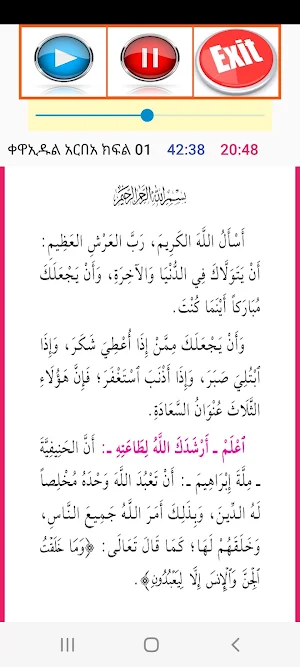 Exit
ቀዋኢዱል አርበአ ክፍል 01 42:38 20:48
بسم الله الرحمن الرحيم
أَسْأَلُ اللَّهَ الكَرِيمَ، رَبَّ العَرْشِ العَظِيمِ:
أَنْ يَتَوَلَّاكَ فِي الدُّنْيَا وَالآخِرَةِ، وَأَنْ يَجْعَلَكَ
مُبَارَكاً أَيْنَمَا كُنْتَ.
وَأَنْ يَجْعَلَكَ مِمَّنْ إِذَا أُعْطِيَ شَكَرَ، وَإِذَا
ٱبْتُلِيَ صَبَرَ، وَإِذَا أَذْنَبَ ٱسْتَغْفَرَ؛ فَإِنَّ هَؤُلَاءِ
الثَّلَاثَ عُنْوَانُ السَّعَادَةِ.
ٱعْلَمْ ـ أَرْشَدَكَ اللَّهُ لِطَاعَتِهِ ـ: أَنَّ الحَنِيفِيَّةَ
ـ مِلَّةَ إِبْرَاهِيمَ ـ: أَنْ تَعْبُدَ اللَّهَ وَحْدَهُ مُخْلِصاً
لَهُ الدِّينَ، وَبِذَلِكَ أَمَرَ اللَّهُ جَمِيعَ النَّاسِ،
وَخَلَقَهُمْ لَهَا؛ كَمَا قَالَ تَعَالَى: ﴿وَمَا خَلَقْتُ
ٱلْجِنَّ وَٱلْإِنسَ إِلَّا لِيَعْبُدُونِ﴾.